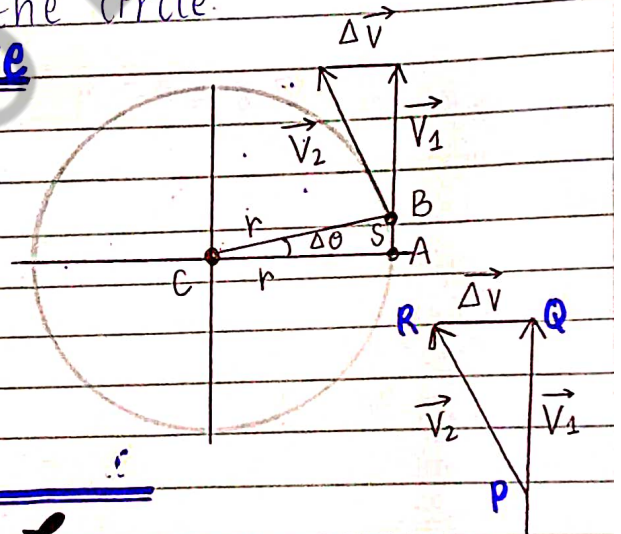 the circle.
e
ΔV⃗
V⃗1
V⃗2
B
r
Δθ
S
A
C
r
ΔV⃗
R
Q
V⃗2
V⃗1
P